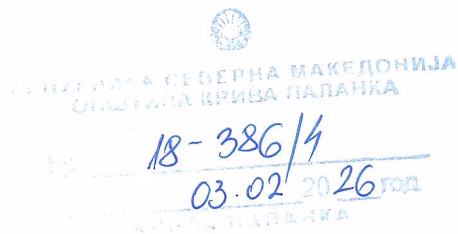 РЕПУБЛИКА СЕВЕРНА МАКЕДОНИЈА
ОПШТИНА КРИВА ПАЛАНКА
Бр. 18-386/4
03.02 2026 год
КРИВА ПАЛАНКА